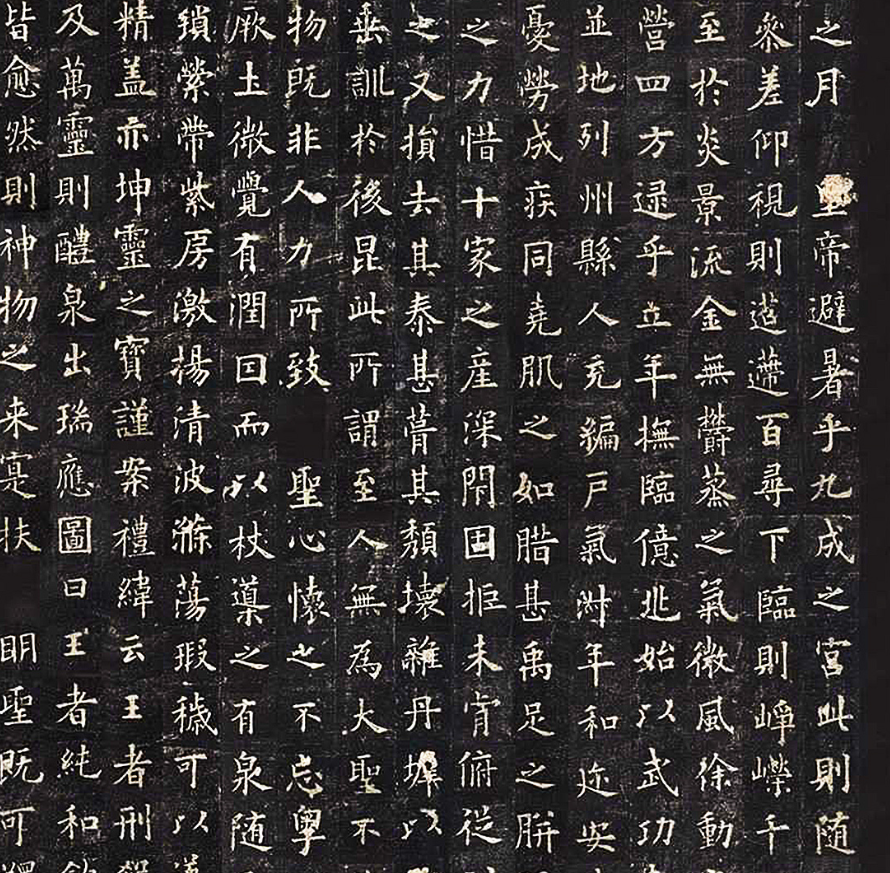 之月 皇帝避暑乎九成之宮此則随
叅差仰視則迢遰百尋下臨則崢嶸千
至於炎景流金無欝蒸之氣微風徐動
營四方逯乎立年撫臨億兆始以武功
並地列州縣人充編戸氣淑年和迩安
憂勞成疾同堯肌之如腊甚禹足之胼
之力惜十家之産深閇固拒未肯俯從
之又損去其泰甚葺其頽壞雜丹墀以
垂訓於後昆此所謂至人無為大聖不
物既非人力所致 聖心懷之不忘粤
厥土微覺有潤因而以杖導之有泉随
瑣縈帶紫房激揚清波滌蕩瑕穢可以
精盖亦坤靈之寶謹案禮緯云王者刑
及萬靈則醴泉出瑞應圖曰王者純和
皆愈然則神物之来寔扶 明聖既可